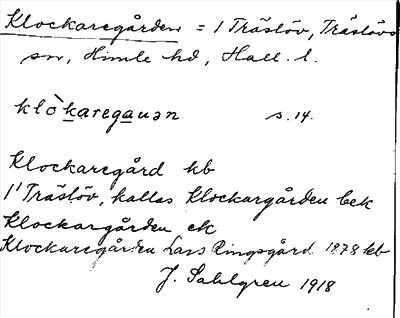 Klockaregården = 1 Träslöv, Träslövs
sn, Himle hd, Hall. l.
klòkaregauən s. 14.
Klockaregård kb
1¹ Träslöv, kallas Klockargården bek
Klockargården ek
Klockaregården Lars Ringsgård 1878 kb
J. Sahlgren 1918